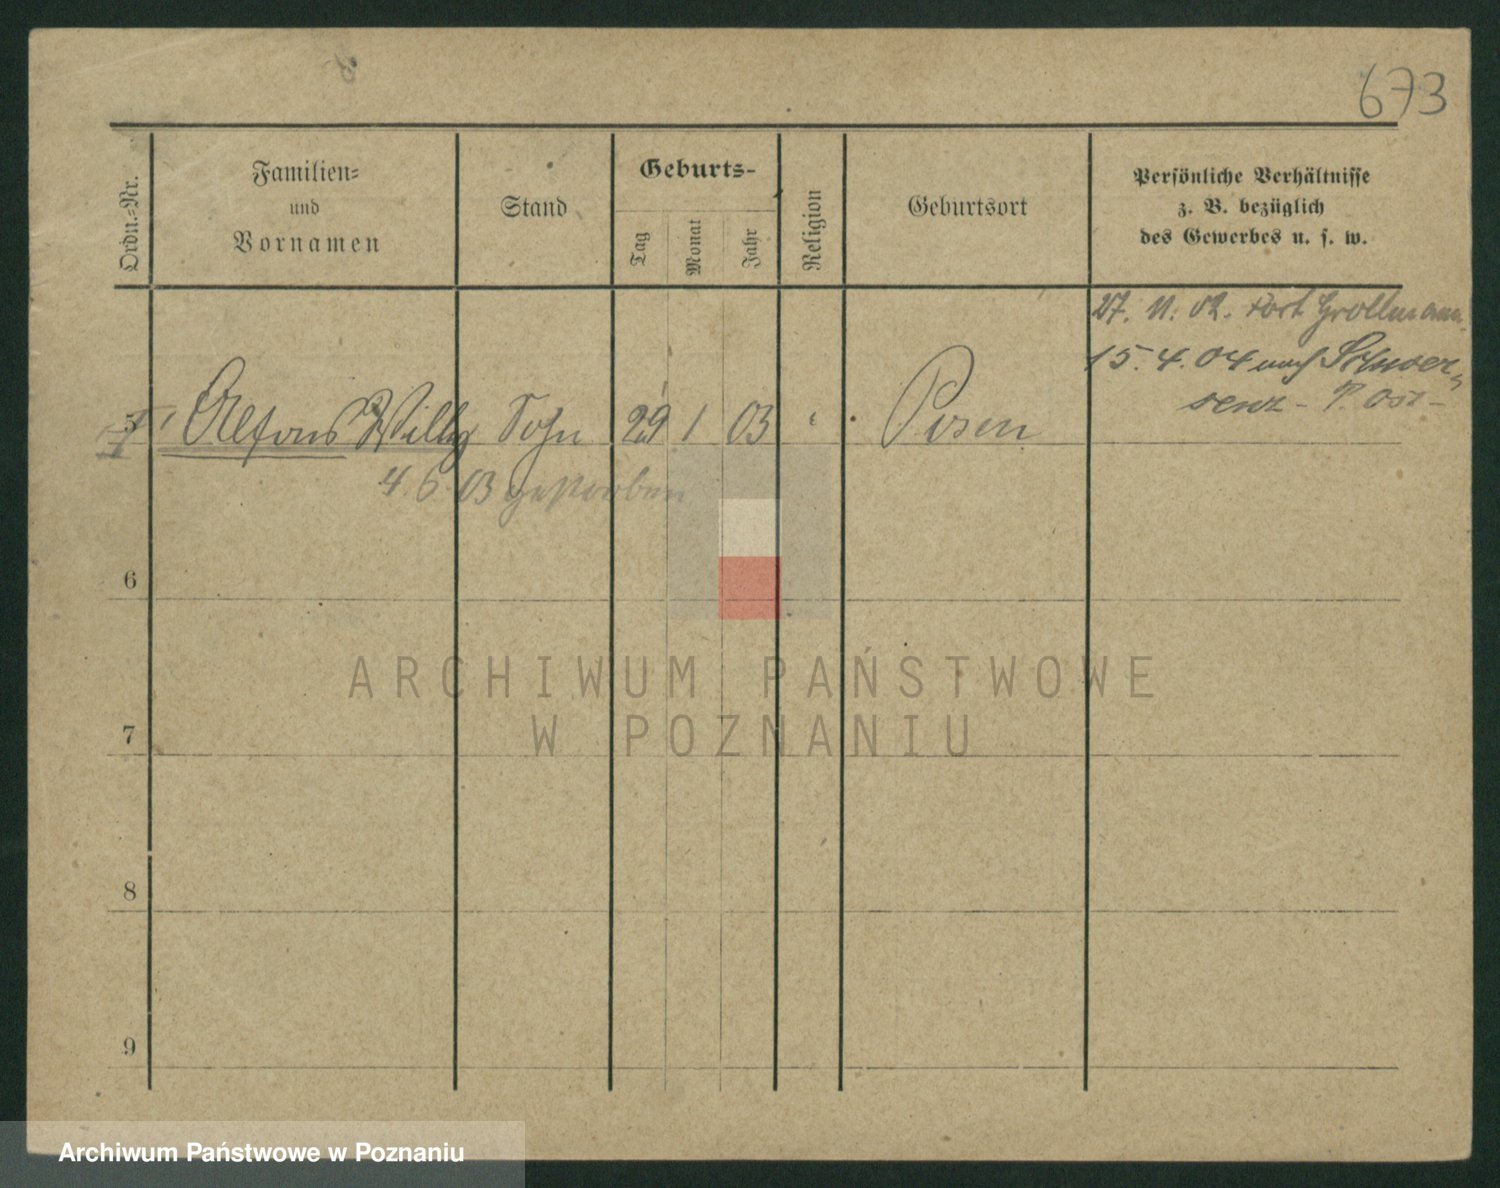 673
Ordn.-Nr.
Familien-
und
Vornamen
Stand
Geburts-
Tag
Monat
Jahr
Religion
Geburtsort
Persönliche Verhältnisse
z. B. bezüglich
des Gewerbes u. s. w.
27. 11. 02. Fort Grollmann
15. 4. 04 nach Schwer-
senz - P. Ost -
5 Alfons Willy Sohn 29 1 03 " Posen
4. 6. 03 gestorben
6
ARCHIWUM PAŃSTWOWE
W POZNANIU
7
8
9
Archiwum Państwowe w Poznaniu